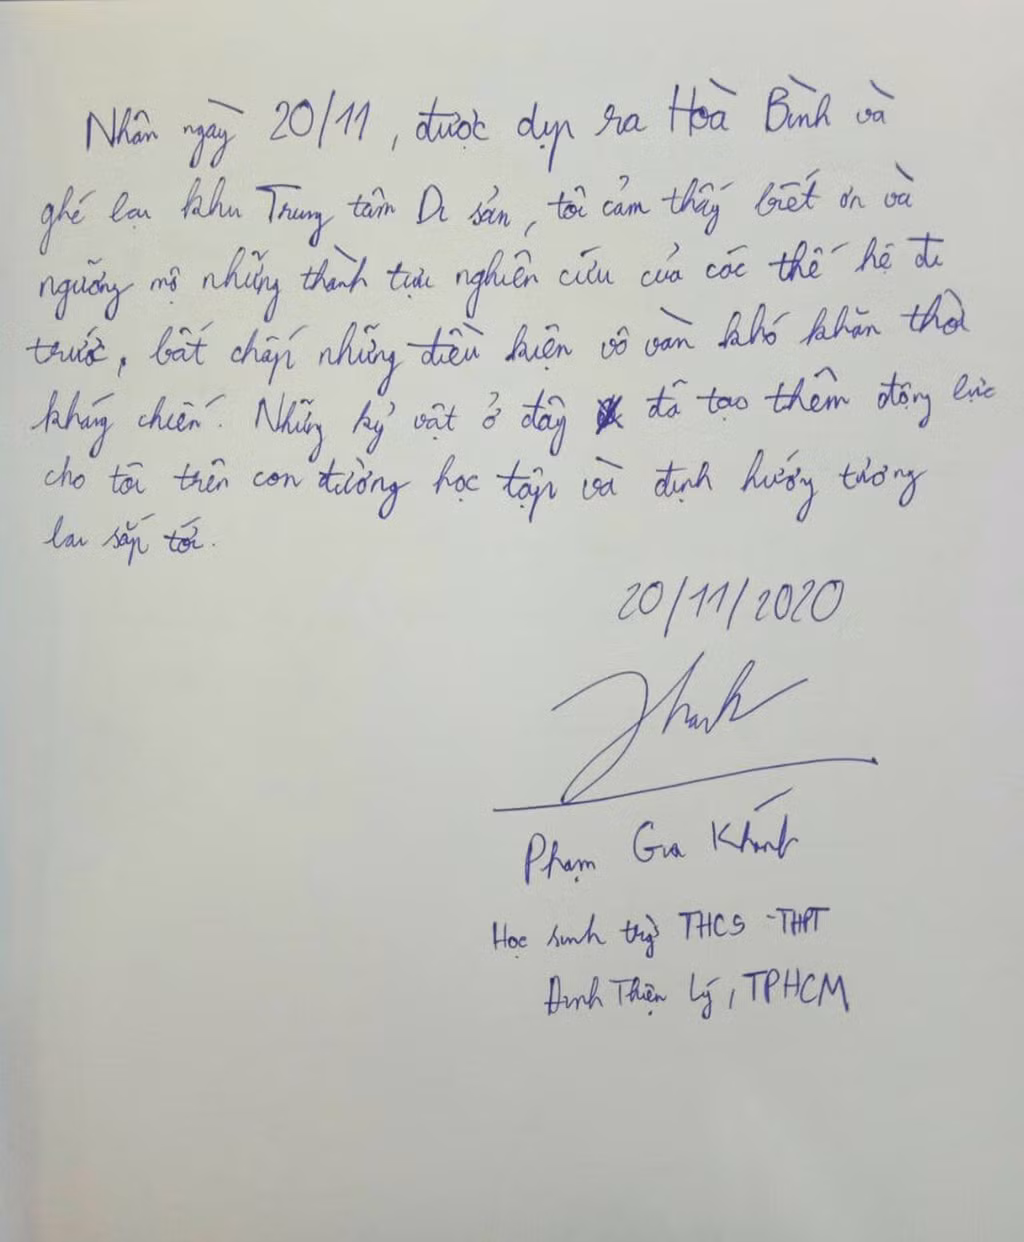 Nhân ngày 20/11, được dịp ra Hoà Bình và
ghé lại khu Trung tâm Di sản, tôi cảm thấy biết ơn và
ngưỡng mộ những thành tựu nghiên cứu của các thế hệ đi
trước, bất chấp những điều kiện vô vàn khó khăn thời
kháng chiến. Những kỷ vật ở đây đã tạo thêm động lực
cho tôi trên con đường học tập và định hướng tương
lai sắp tới.
20/11/2020
Khanh
Phạm Gia Khánh
Học sinh trg THCS - THPT
Đinh Thiện Lý, TPHCM